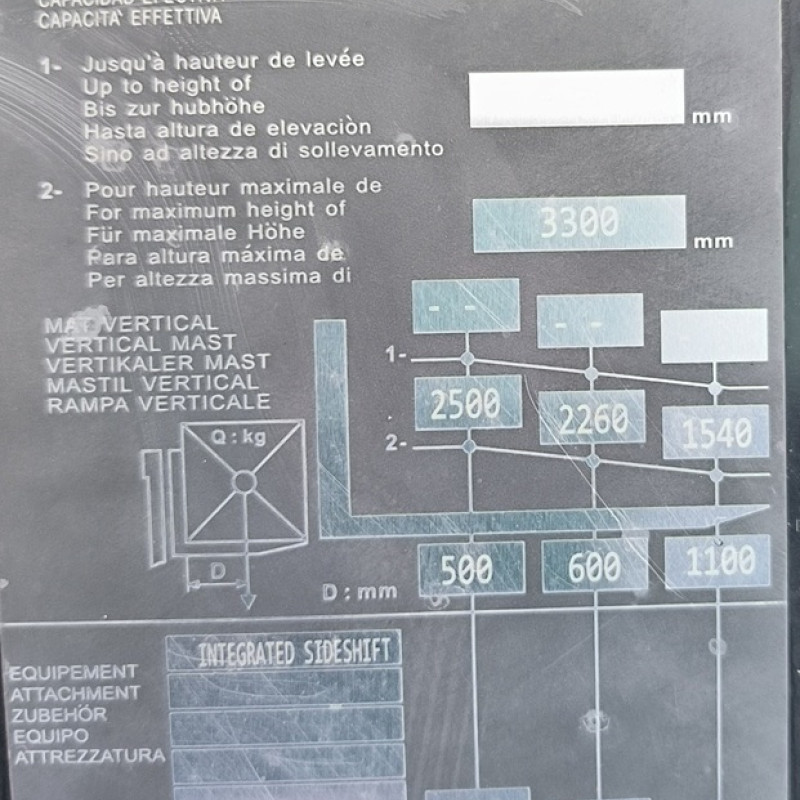 CAPACITA' EFFETTIVA
1- Jusqu'à hauteur de levée
Up to height of
Bis zur hubhöhe
Hasta altura de elevaciòn
Sino ad altezza di sollevamento
mm
2- Pour hauteur maximale de
For maximum height of
Für maximale Höhe
Para altura máxima de
Per altezza massima di
3300 mm
MAT VERTICAL
VERTICAL MAST
VERTIKALER MAST
MASTIL VERTICAL
RAMPA VERTICALE
- - - -
1-
2500 2260 1540
2-
Q : kg
D
D : mm 500 600 1100
EQUIPEMENT
ATTACHMENT
ZUBEHÓR
EQUIPO
ATTREZZATURA
INTEGRATED SIDESHIFT